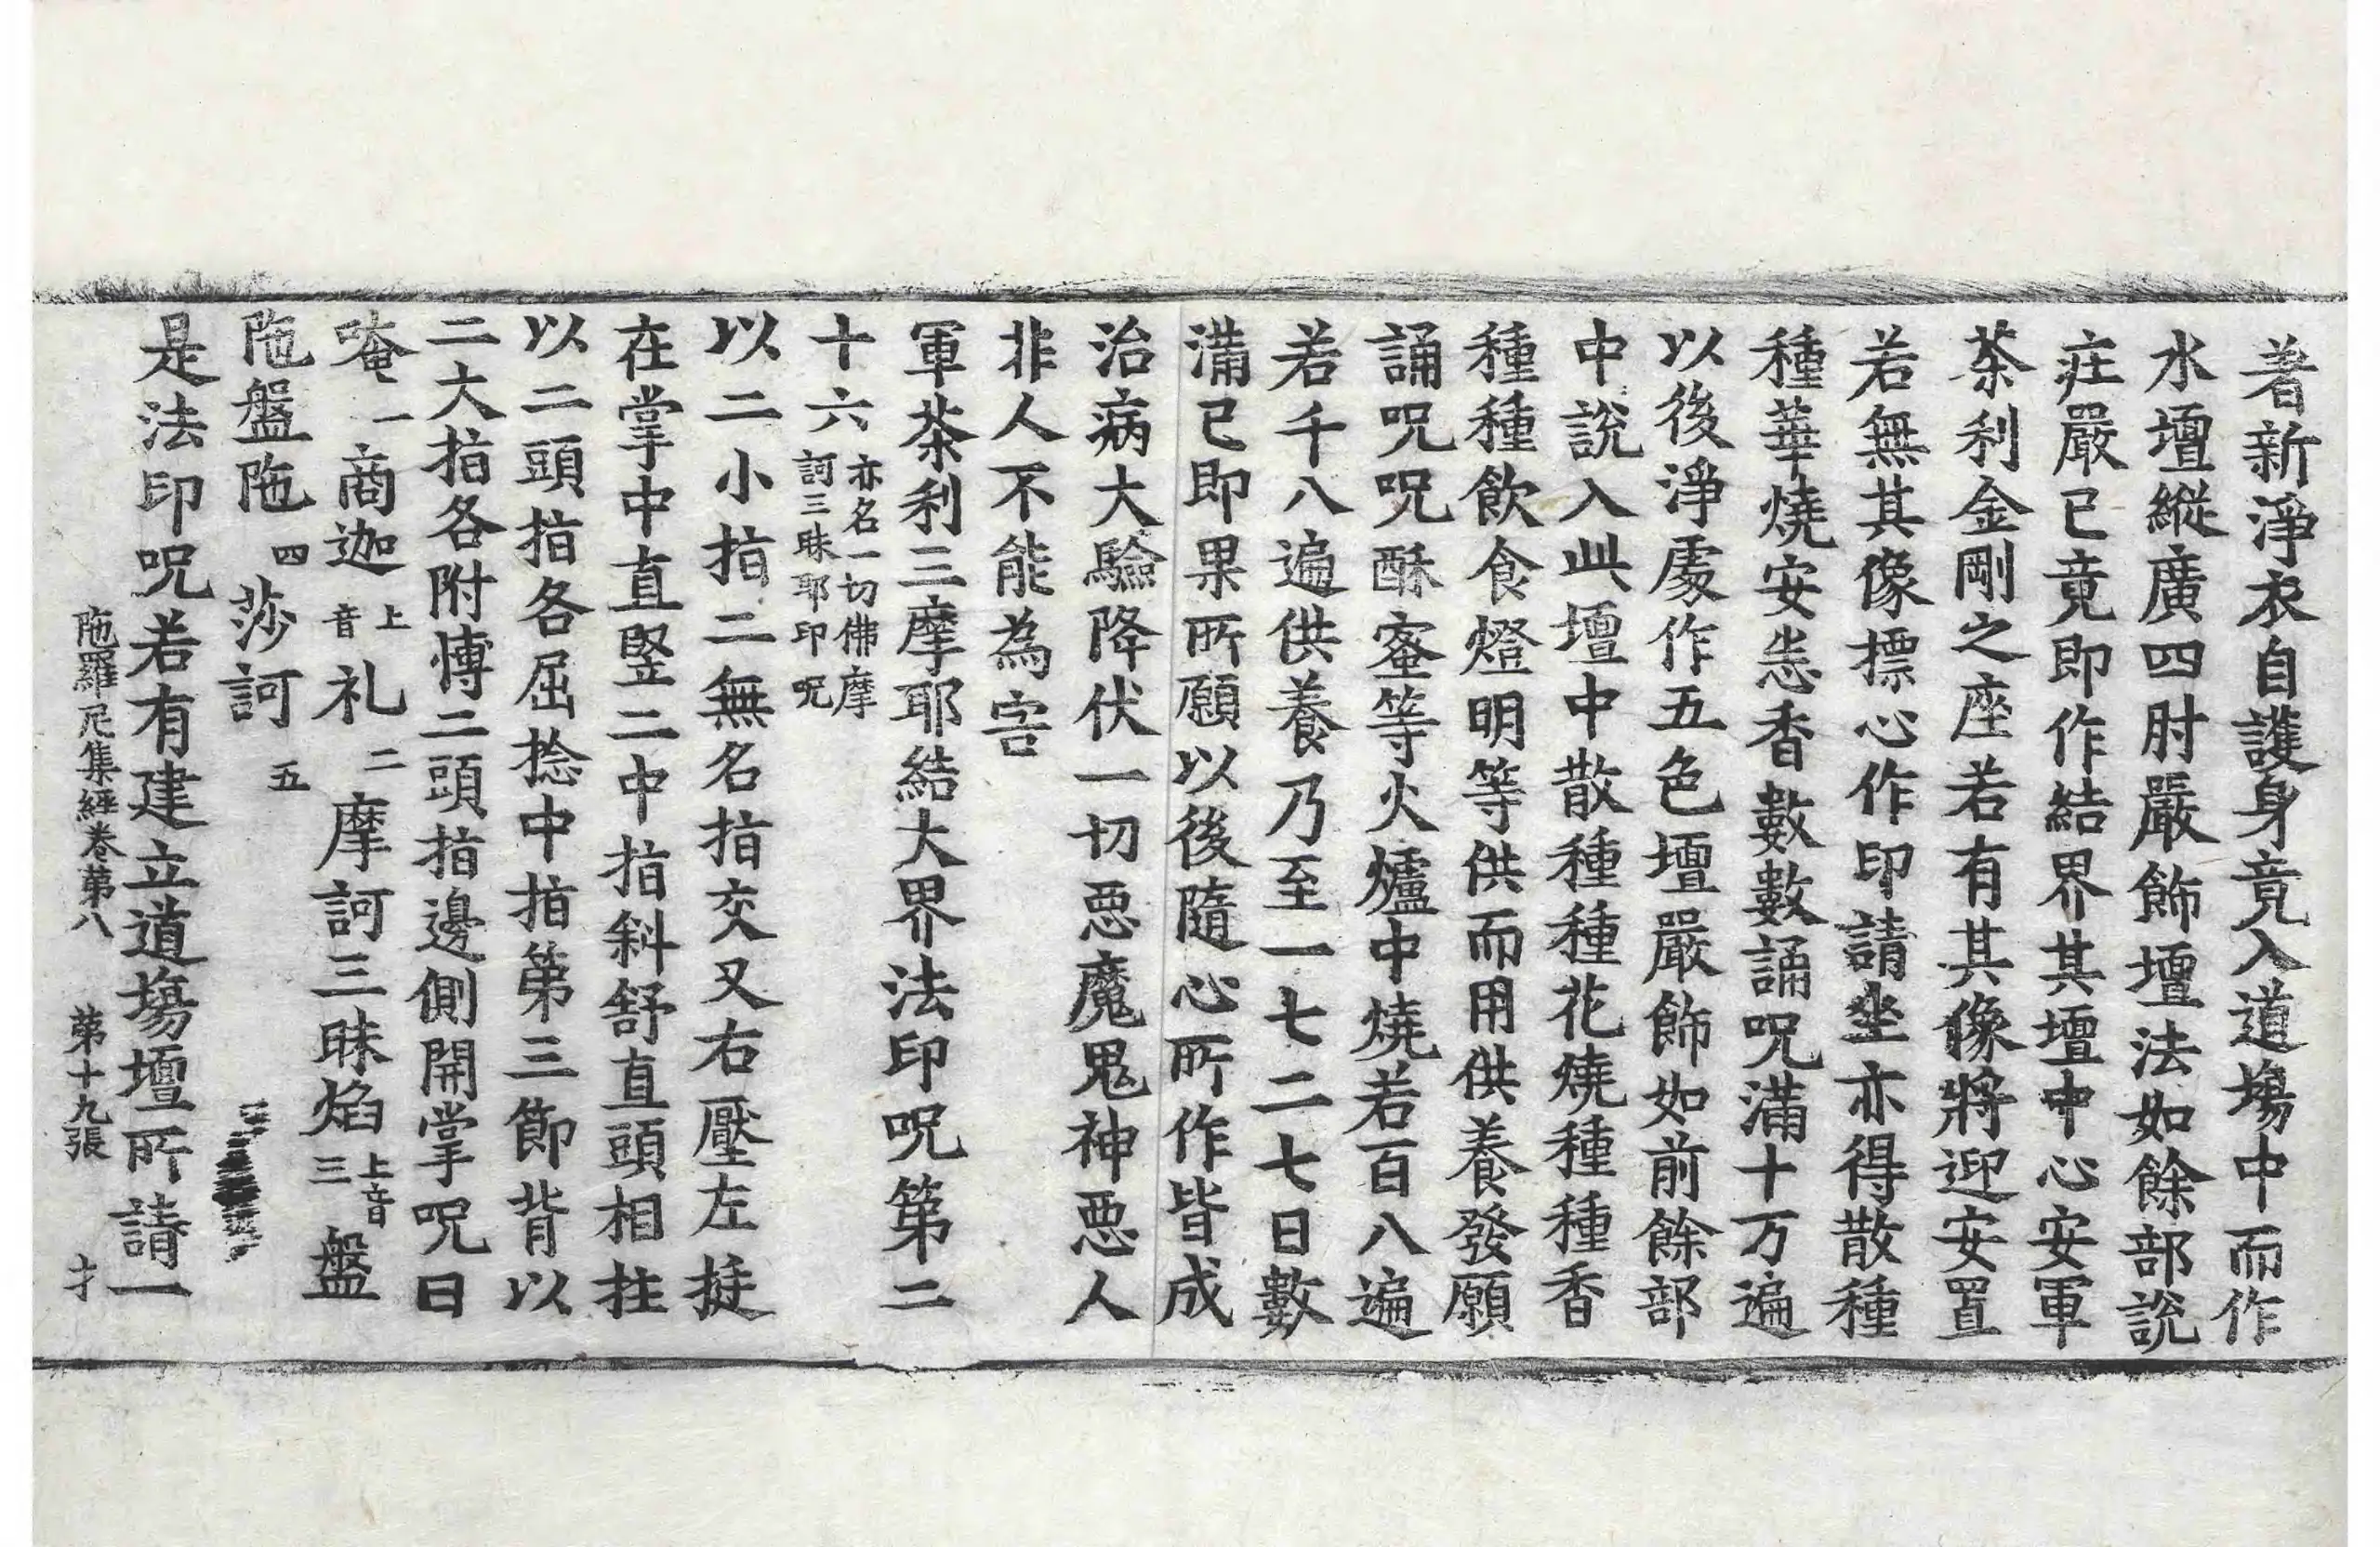 著新淨衣自護身竟入道塲中而作
水壇縱廣四肘嚴飾壇法如餘部說
疘嚴已竟即作結界其壇中心安軍
茶利金剛之座若有其像將迎安置
若無其像摽心作印請坐亦得散種
種華燒安悉香數數誦呪滿十万遍
以後淨處作五色壇嚴飾如前餘部
中說入此壇中散種種花燒種種香
種種飲食燈明等供而用供養發願
誦呪呪酥蜜等火爐中燒若百八遍
若千八遍供養乃至一七二七日數
滿已即果所願以後隨心所作皆成
治病大驗降伏一切惡魔鬼神惡人
非人不能為害
軍茶利三摩耶結大界法印呪第二
十六亦名一切佛摩訶三昧耶印呪
以二小指二無名指交叉右壓左挺
在掌中直竪二中指斜舒直頭相拄
以二頭指各屈捻中指第三節背以
二大指各附愽二頭指邊側開掌呪曰
唵一商迦上音礼二摩訶三昧焰上音三盤
陁盤陁四莎訶五
是法印呪若有建立道塲壇所請一
陁羅尼集經卷第八 第十九張 才